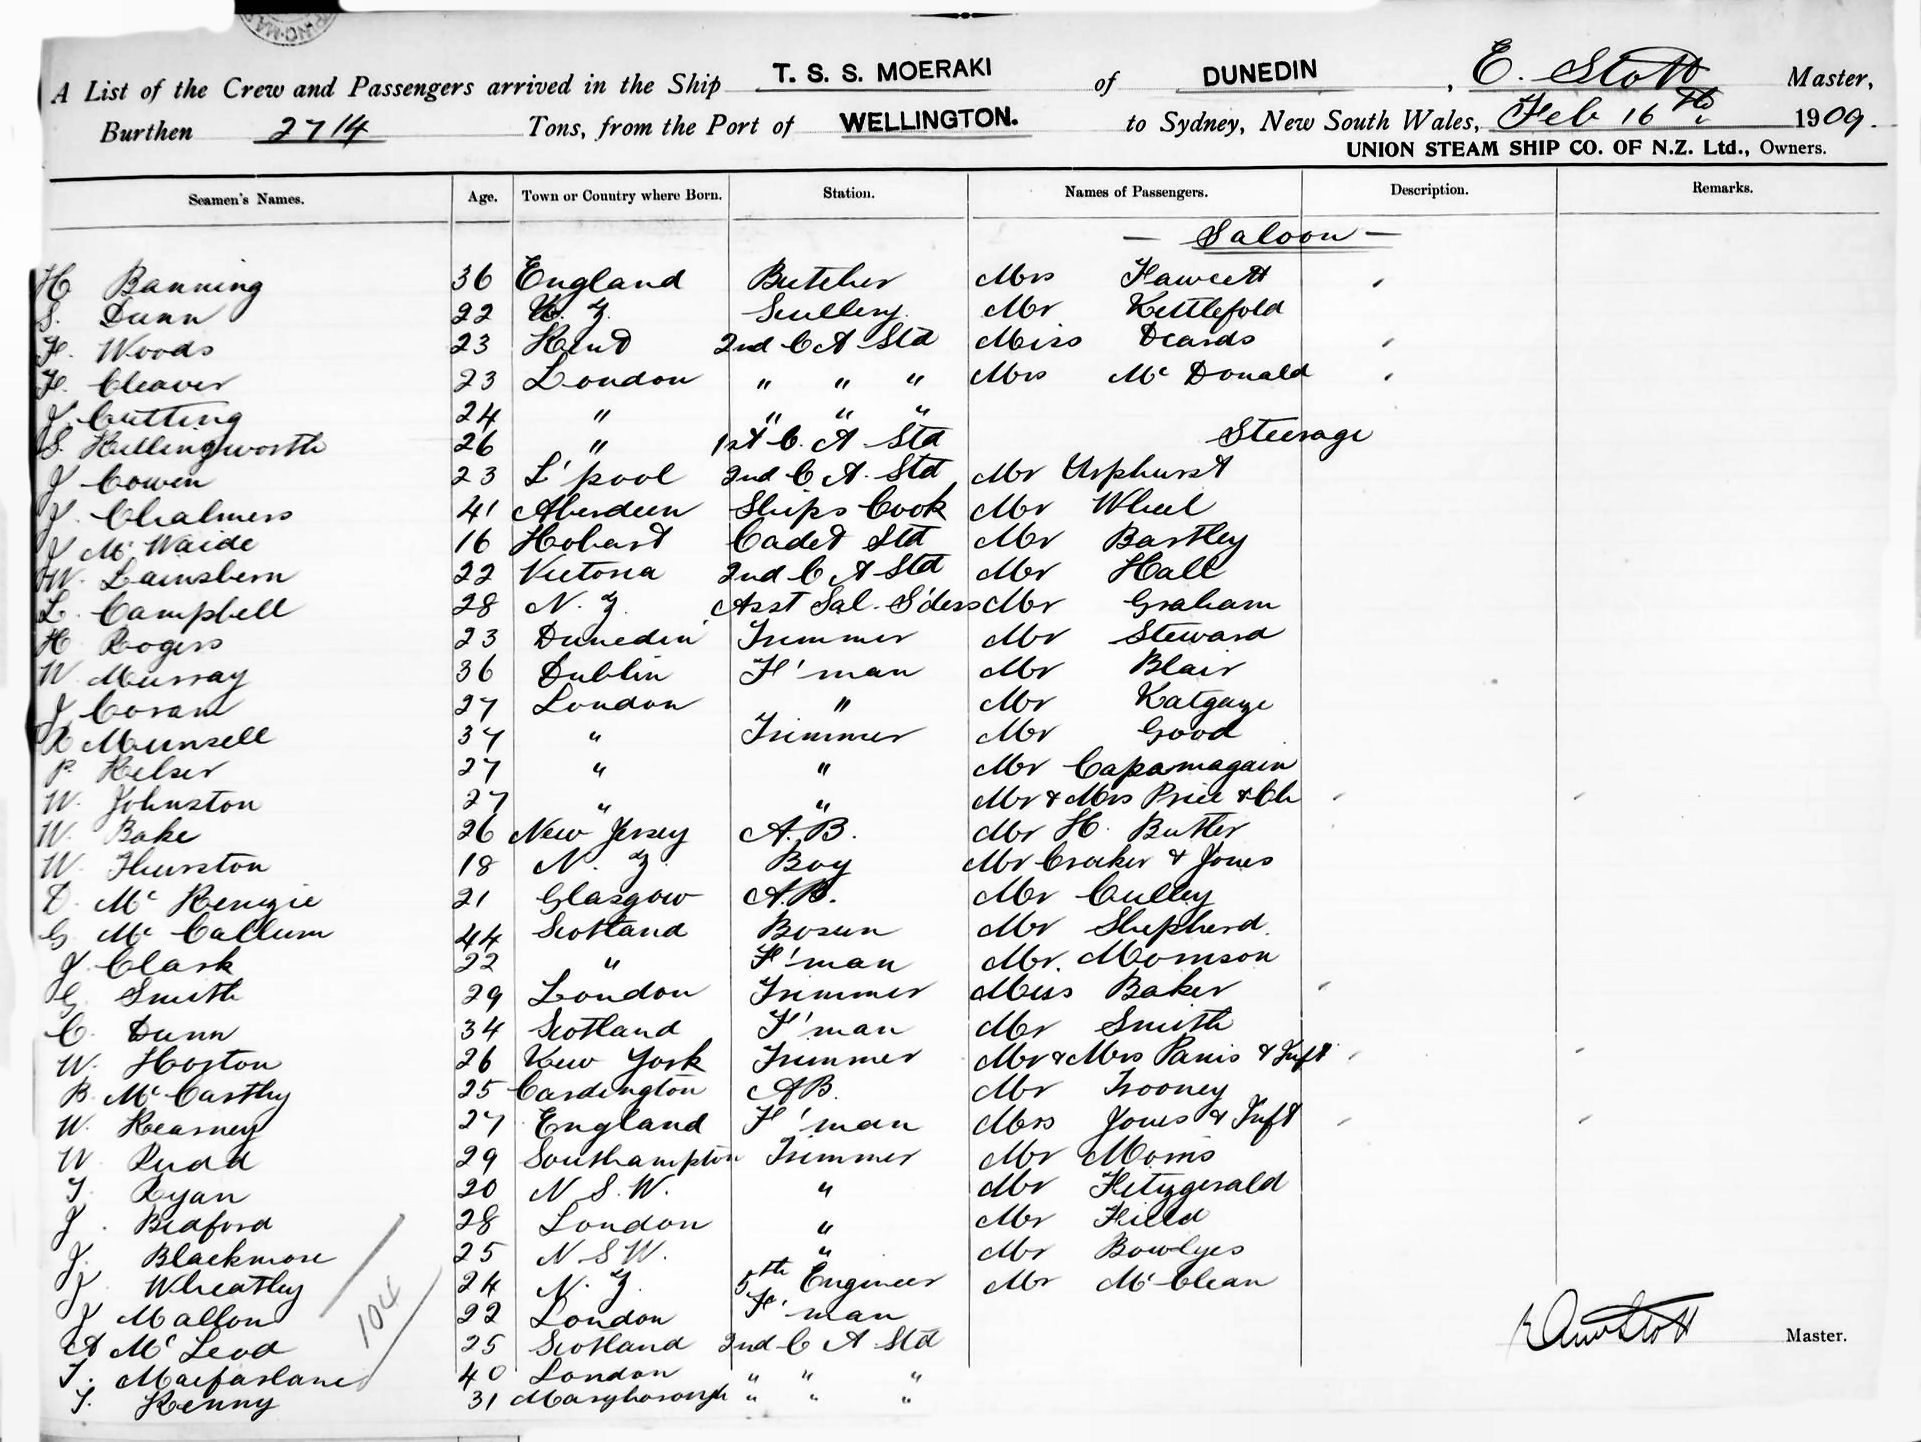 A List of the Crew and Passengers arrived in the Ship T. S. S. MOERAKI of DUNEDIN, E. Stott Master,
Burthen 2714 Tons, from the Port of WELLINGTON. to Sydney, New South Wales, Feb 16th 1909.
UNION STEAM SHIP CO. OF N.Z. Ltd., Owners.
Seamen's Names. Age. Town or Country where Born. Station. Names of Passengers. Description. Remarks.
— Saloon —
H Banning 36 England Butcher Mrs Fawcett
S. Dunn 22 N. Z. Scullery Mr Kettlefold
F. Woods 23 Kent 2nd C A Std Miss Deards
F. Cleaver 23 London " " " Mrs Mc Donald
J Cutting 24 " " " "
S. Hullingworth 26 " 1st C. A Std Steerage
J Cowen 23 L'pool 2nd C A. Std Mr Urphurst
J. Chalmers 41 Aberdeen Ships Cook Mr Wheel
J Mc Waide 16 Hobart Cadet Std Mr Bartley
W. 22 Victoria 2nd C A Std Mr Hall
L. Campbell 28 N. Z. Asst Sal. S'dess Mr Graham
H Rogers 23 Dunedin Trimmer Mr Steward
W Murray 36 Dublin F'man Mr Blair
J Coram 27 London " Mr
R Munsell 37 " Trimmer Mr Good
P. Kelser 27 " " Mr Capamagain
W. Johnston 27 " " Mr & Mrs Price & Ch
W. Bake 26 New Jersey A. B. Mr H. Butler
W. Thurston 18 N. Z. Boy Mr Crocker & Jones
D. Mc Kenzie 21 Glasgow A. B. Mr Culley
G. Mc Callum 44 Scotland Bosun Mr Shepherd.
J. Clark 22 " F'man Mr. Morrison
G. Smith 29 London Trimmer Miss Baker
C. Dunn 34 Scotland F'man Mr Smith
W. Horton 26 New York Trimmer Mr & Mrs Panis & Inft
B. McCarthy 25 Cardington A B. Mr Trooney
W. Kearney 27 England F'man Mrs Jones & Inft
W. Rudd 29 Southampton Trimmer Mr Morris
T. Ryan 20 N. S. W. " Mr Fitzgerald
J. Bedford 28 London " Mr Field
J. Blackmore 25 N S W. " Mr Bowlyes
J. Wheatley 24 N. Z. 5th Engineer Mr McClean
J Mallon 22 London F'man
A Mc Leod 25 Scotland 2nd C A Std
T. Macfarlane 40 London " " "
T. Kenny 31 Maryborough " " "
104
Master.